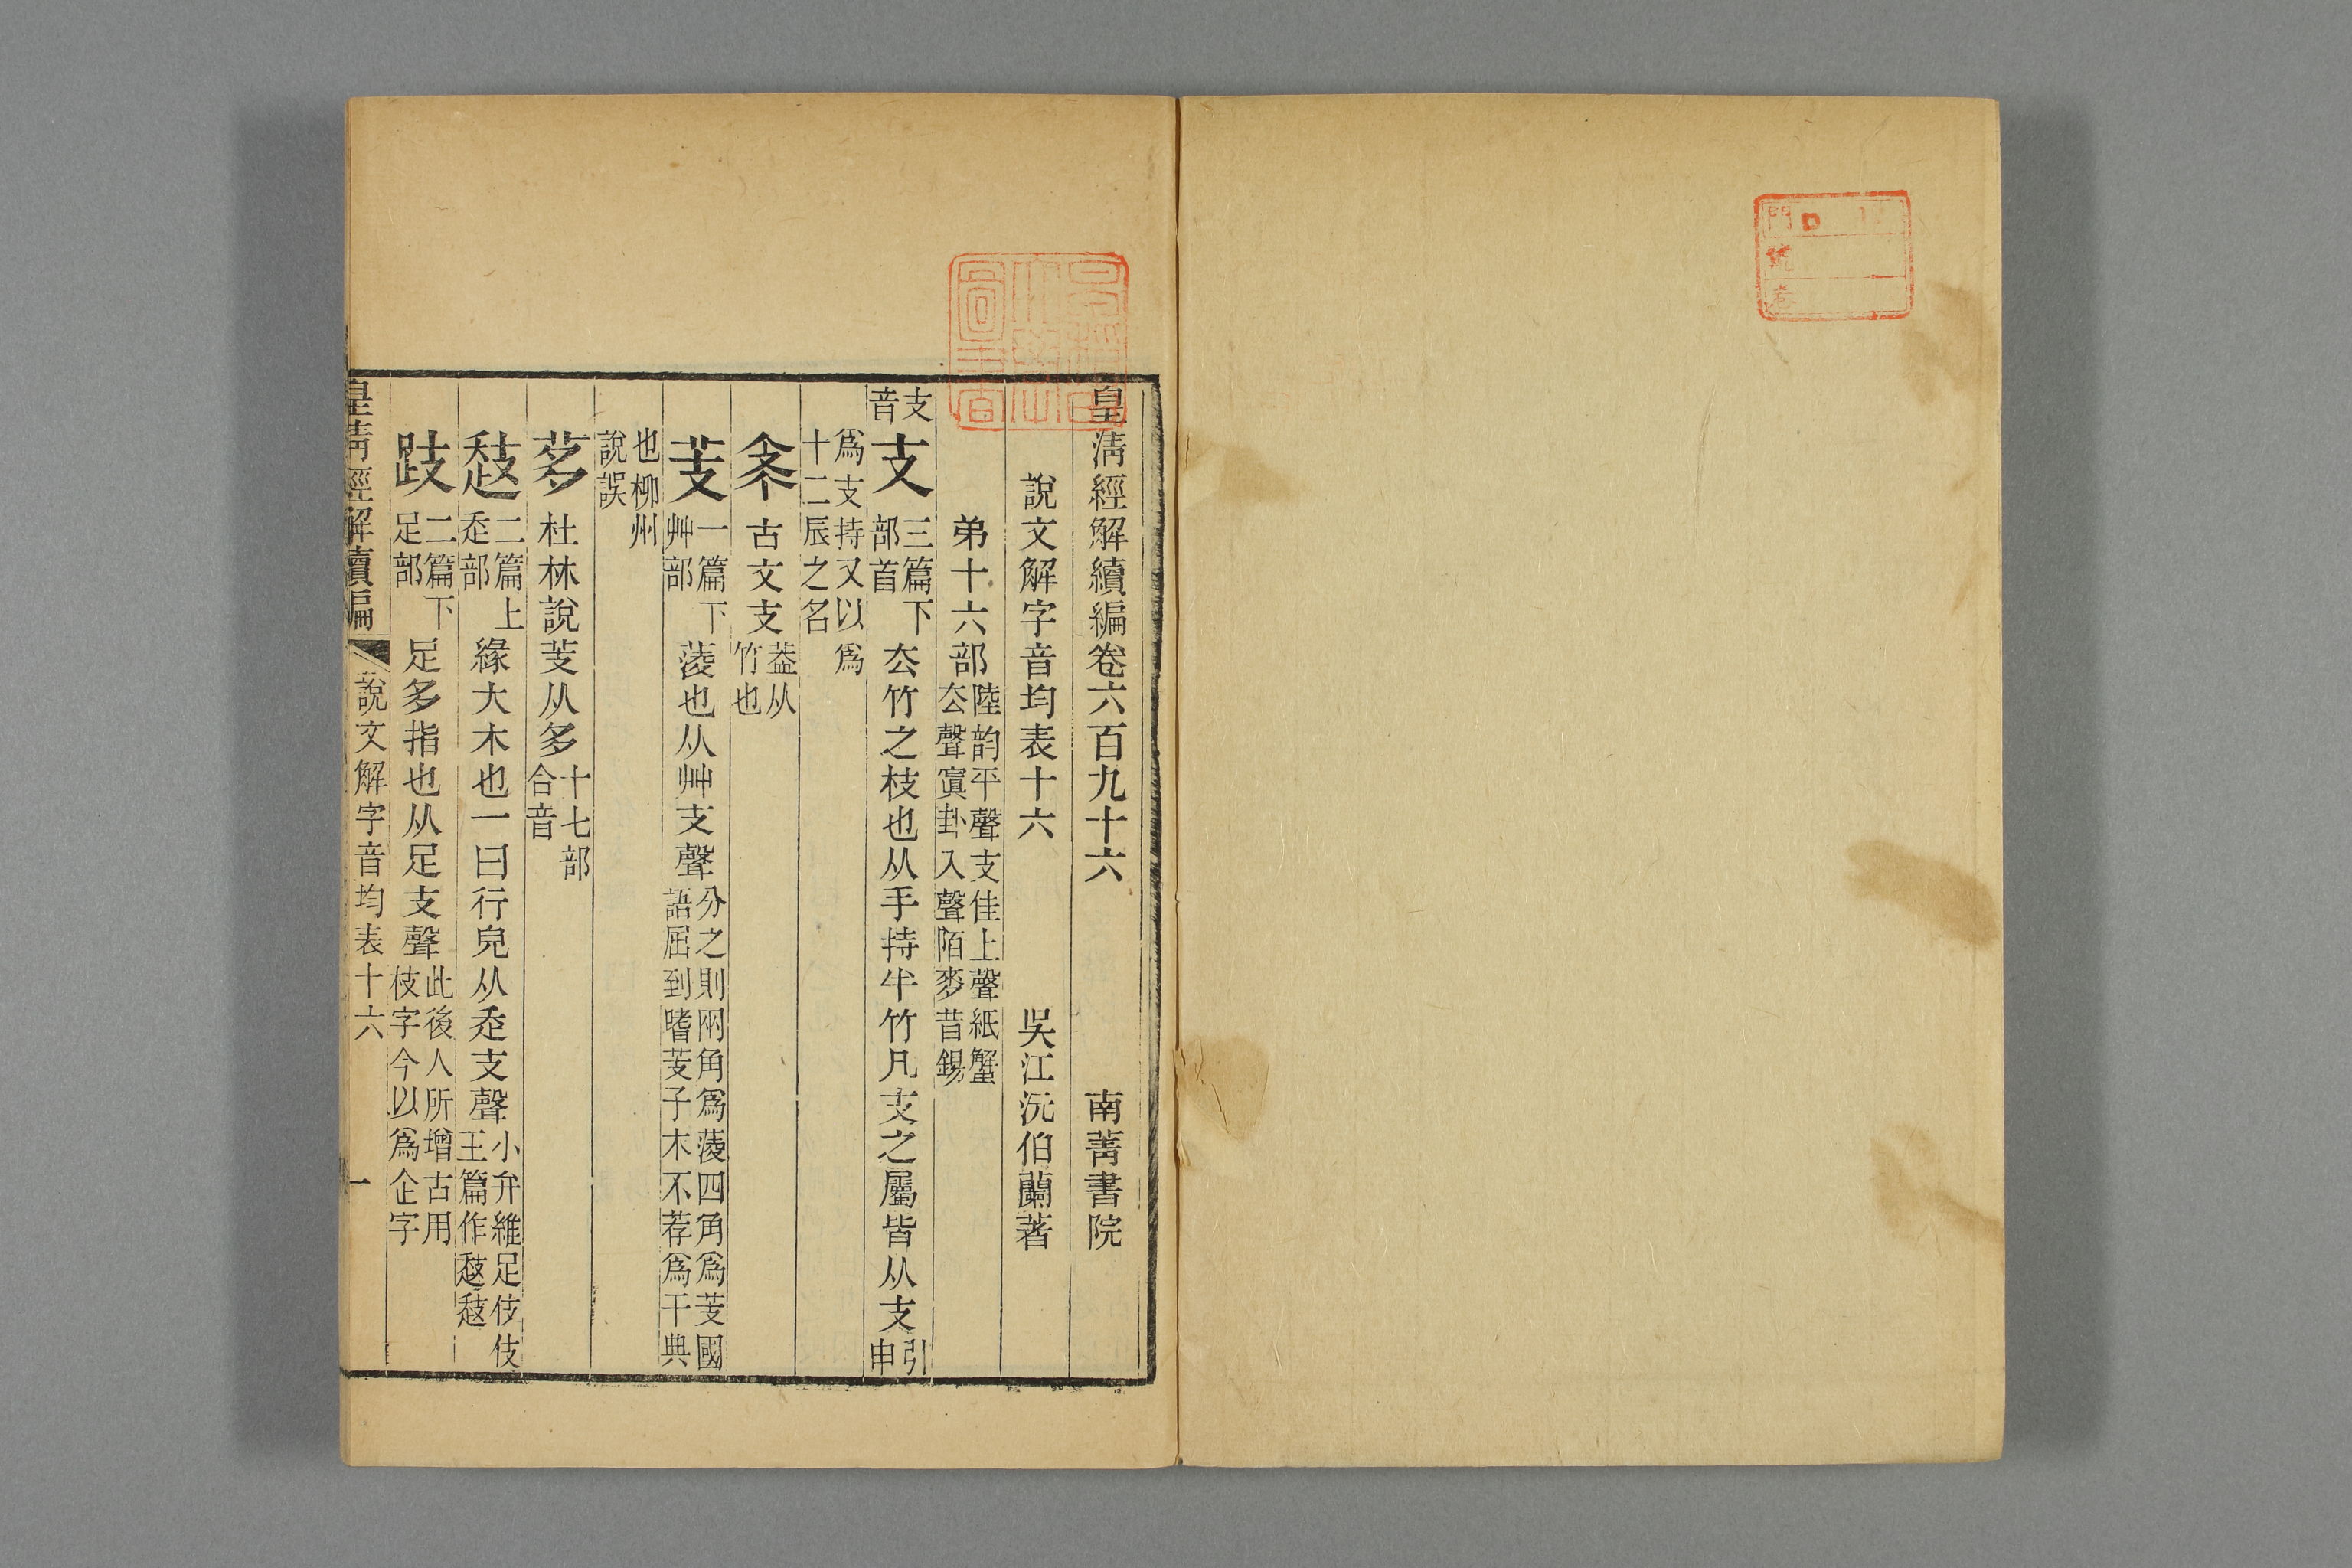 皇淸經解續編卷六百九十六
南菁書院
說文解字音均表十六
吳江沅伯蘭著
弟十六部
陸韵平聲支佳上聲紙蟹
厺聲寘卦入聲陌麥昔錫
支音
支
三篇下
部首
厺竹之枝也从手持半竹凡支之屬皆从支
引
申
爲支持又以爲
十二辰之名
古文支
葢从
竹也
芰
一篇下
艸部
蔆也从艸支聲
分之則兩角爲蔆四角爲芰國
語屈到嗜芰子木不荐爲干典
也柳州
說誤
茤
杜林說芰从多
十七部
合音
二篇上
部
緣大木也一曰行皃从支聲
小弁維足伎伎
王篇作
跂
二篇下
足部
足多指也从足支聲
此後人所增古用
枝字今以爲企字
皇淸經解續編
說文解字音均表十六
一
門
號